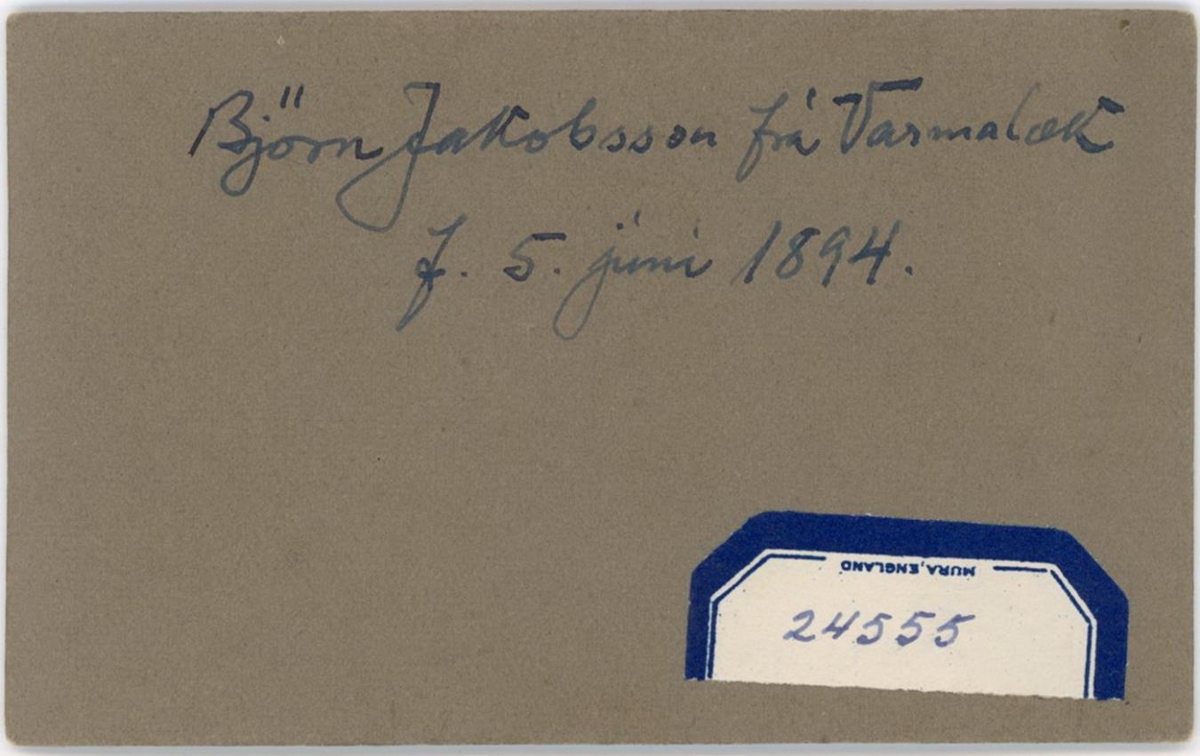 Björn Jakobsson frá Varmalæk
f. 5. júní 1894.
MURA, ENGLAND
24555